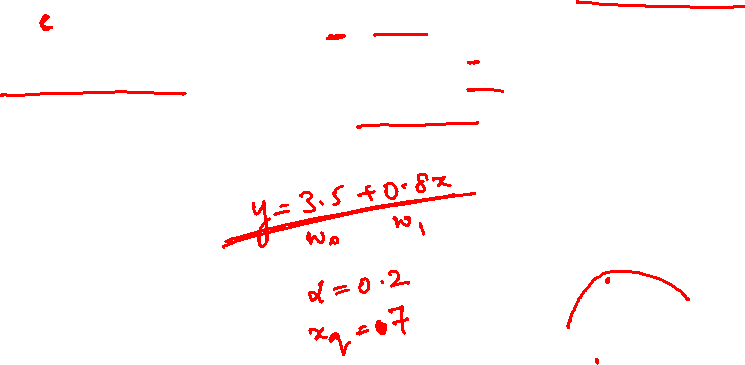 y = 3.5 + 0.8x
w₀ w₁
α = 0.2
x_q = 7